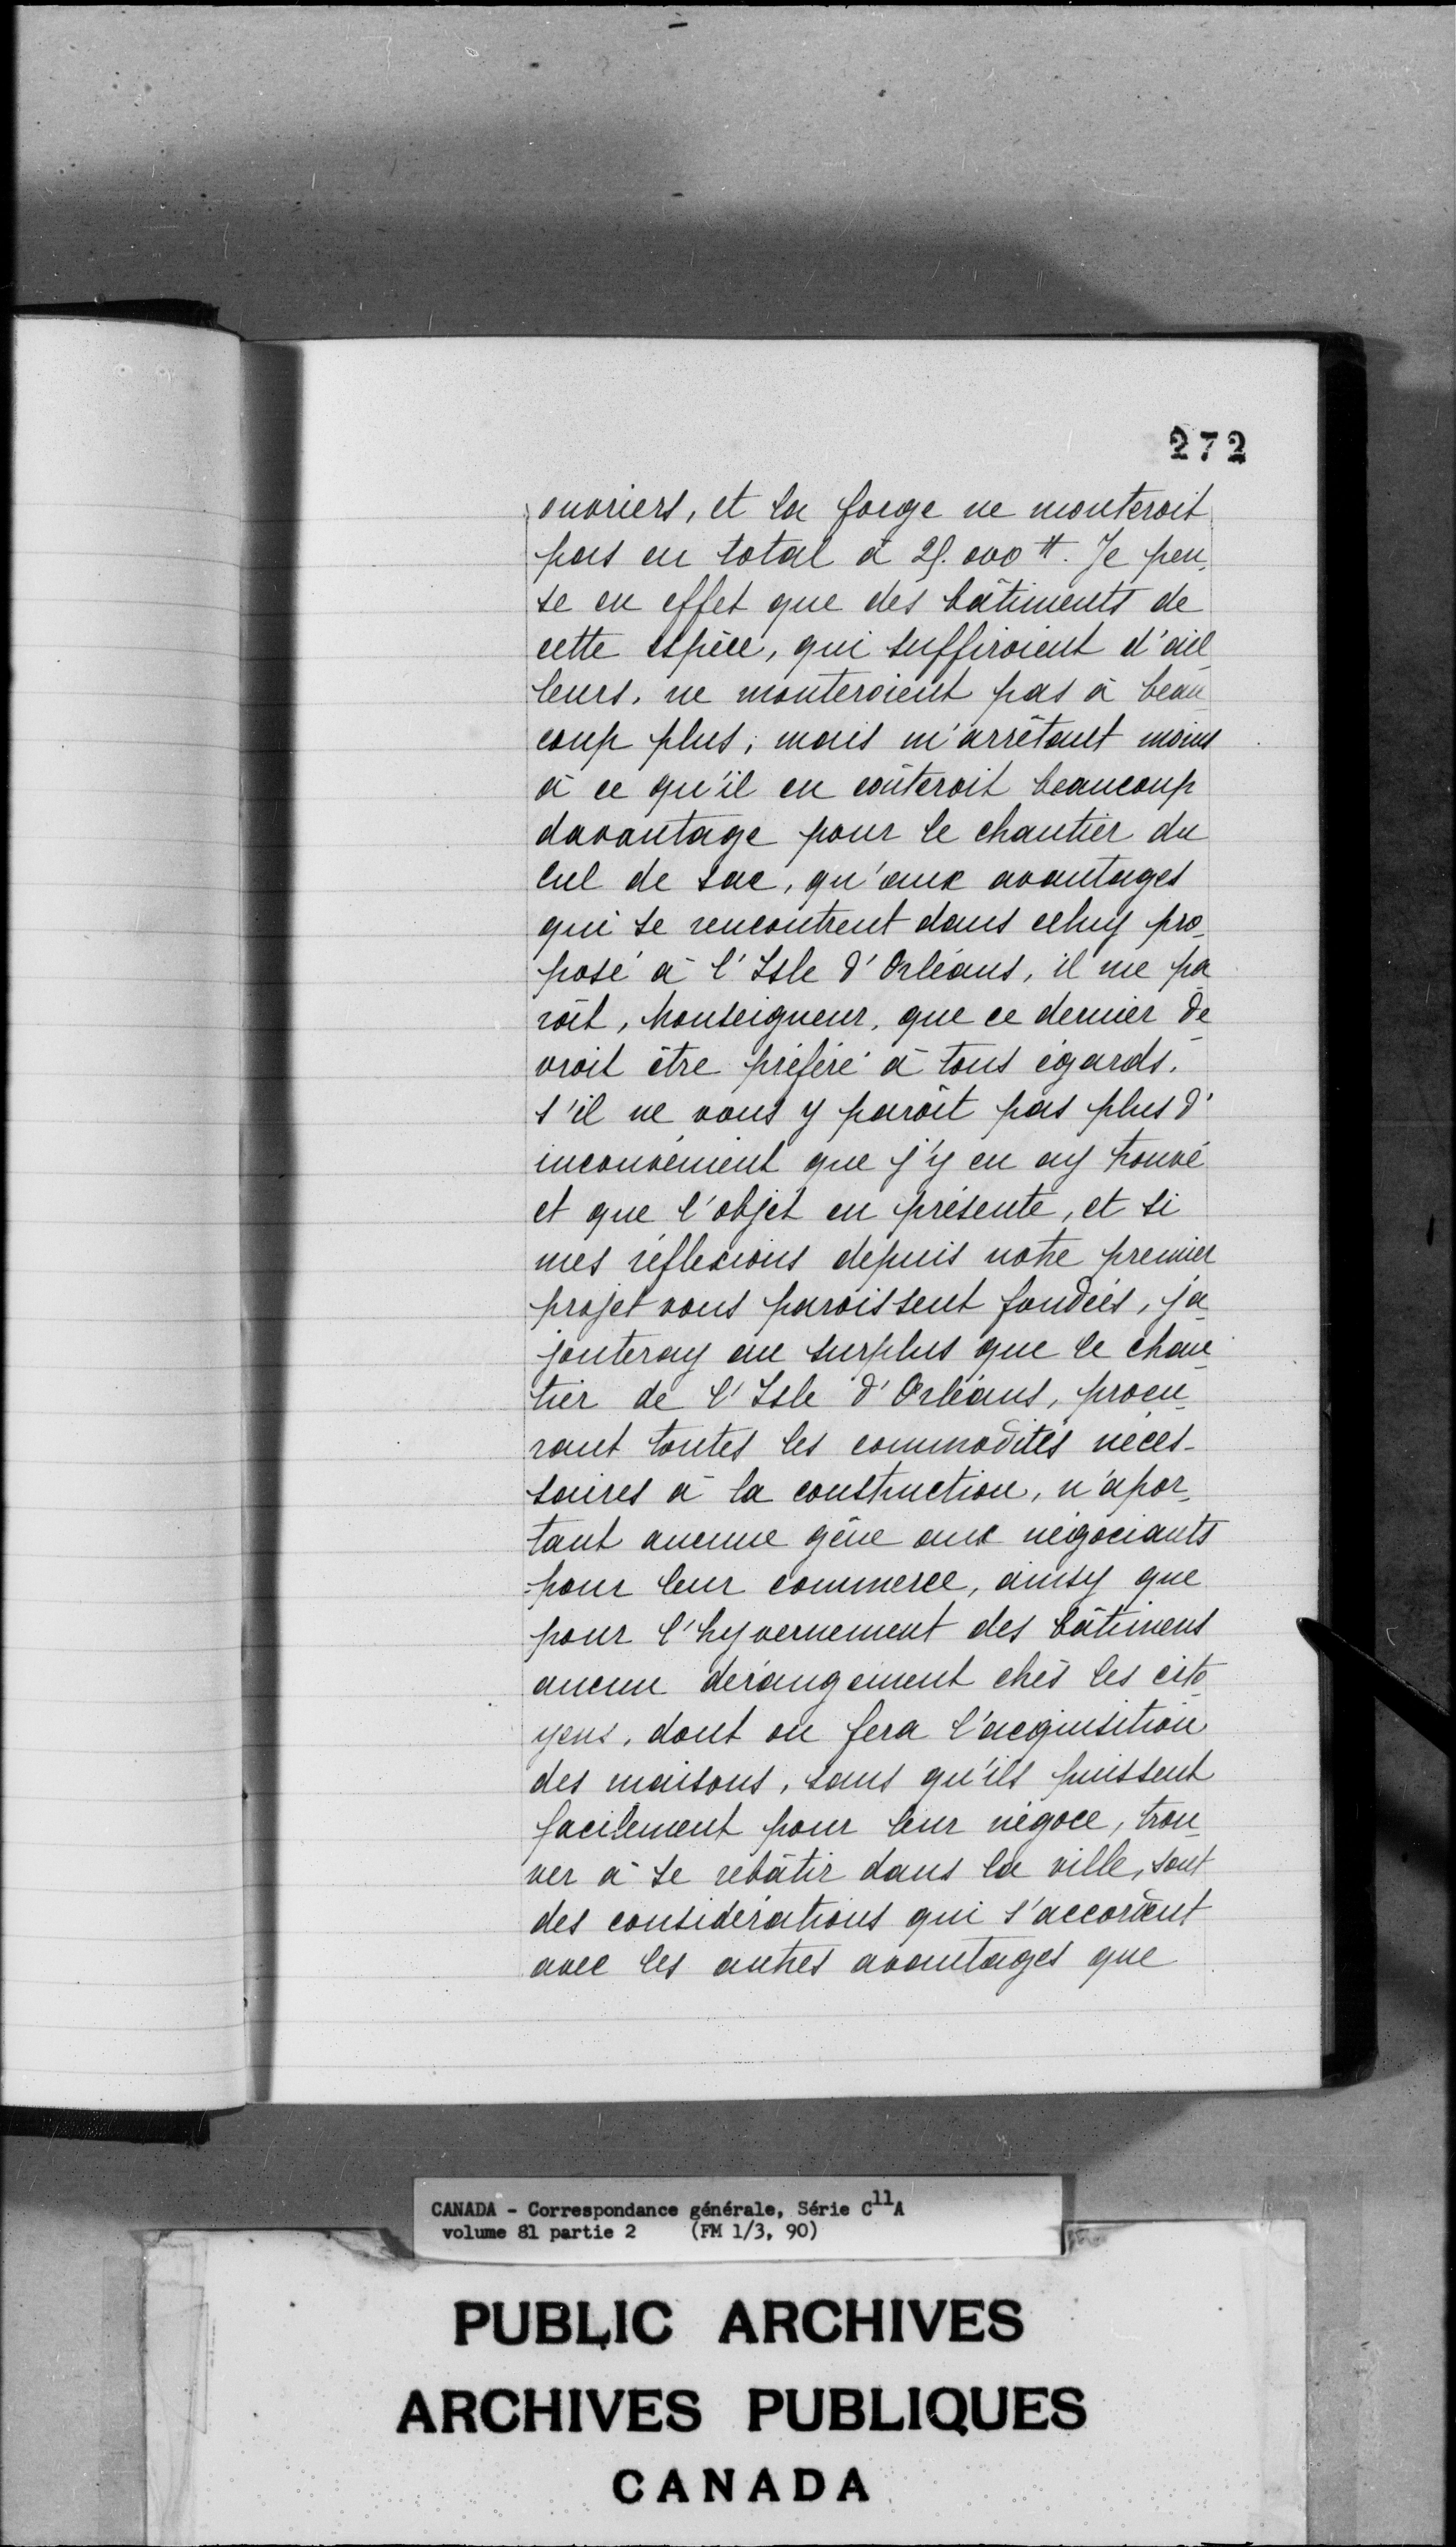 272
ouvriers, et la forge ne monteroit
pas en total à 25.000 ₶. Je pen-
se en effet que des bâtiments de
cette espèce, qui suffiroient d'ail
leurs, ne monteroient pas à beau
coup plus; mais m'arrêtant moins
à ce qu'il en coûteroit beaucoup
davantage pour le chantier du
cul de sac, qu'aux avantages
qui se rencontrent dans celuy pro-
posé à l'Isle d'Orléans, il me pa
roît, Monseigneur, que ce dernier de
vroit être préféré à tous égards.
s'il ne vous y paroît pas plus d'
inconvénient que j'y en ay trouvé
et que l'objet en présente, et si
mes réflexions depuis notre premier
projet vous paroissent fondées, j'a
jouteray au surplus que le chan
tier de l'Isle d'Orléans, procu-
rant toutes les commodités néces-
saires à la construction, n'apor-
tant aucune gêne aux négociants
pour leur commerce, ainsy que
pour l'hyvernement des bâtimens
aucun dérangement chés les cito
yens, dont on fera l'acquisition
des maisons, sans qu'ils puissent
facilement pour leur négoce, trou-
ver à se rebâtir dans la ville, sont
des considérations qui s'accordent
avec les autres avantages que
CANADA - Correspondance générale, Série C11A
volume 81 partie 2 (FM 1/3, 90)
PUBLIC ARCHIVES
ARCHIVES PUBLIQUES
CANADA